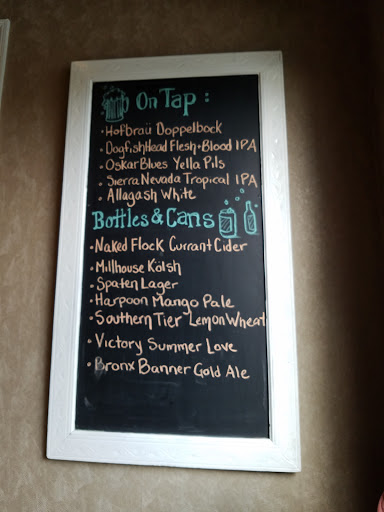 On Tap:
• Hofbraü Doppelbock
• Dogfish Head Flesh + Blood IPA
• Oskar Blues Yella Pils
• Sierra Nevada Tropical IPA
• Allagash White
Bottles & Cans
• Naked Flock Currant Cider
• Millhouse Kölsh
• Spaten Lager
• Harpoon Mango Pale
• Southern Tier Lemon Wheat
• Victory Summer Love
• Bronx Banner Gold Ale